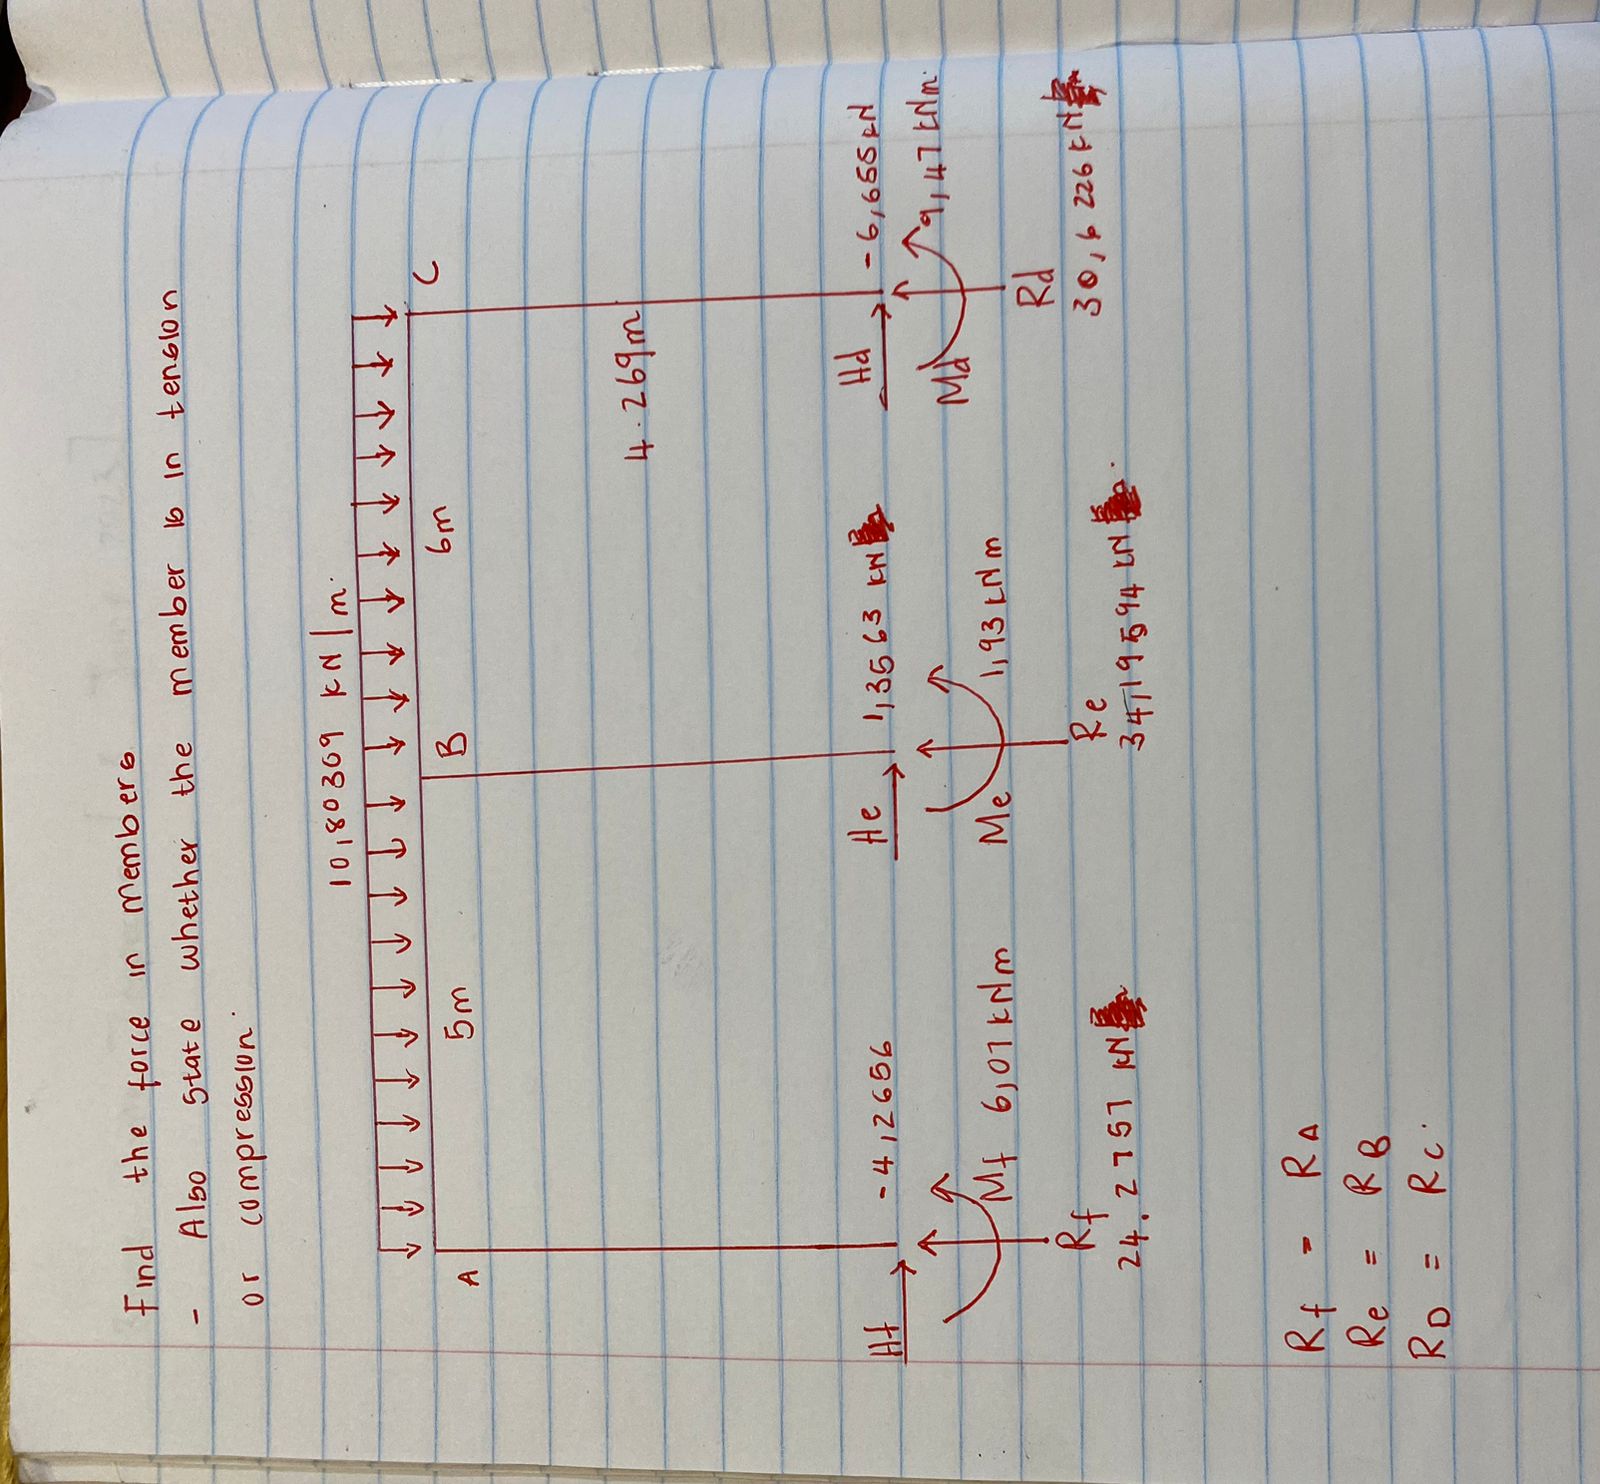 Find the force in members
- Also state whether the member is in tension
or compression.
10,80309 kN/m.
A
B
C
5m
6m
4.269m
Hf
-4,2656
He
1,3563 kN
Hd
-6,655 kN
Mf 6,07 kNm
Me
1,93 kNm
Md
9,47 kNm.
Rf
24.2757 kN
Re
34,19594 kN
Rd
30,6226 kN
Rf = RA
Re = RB
RD = RC.